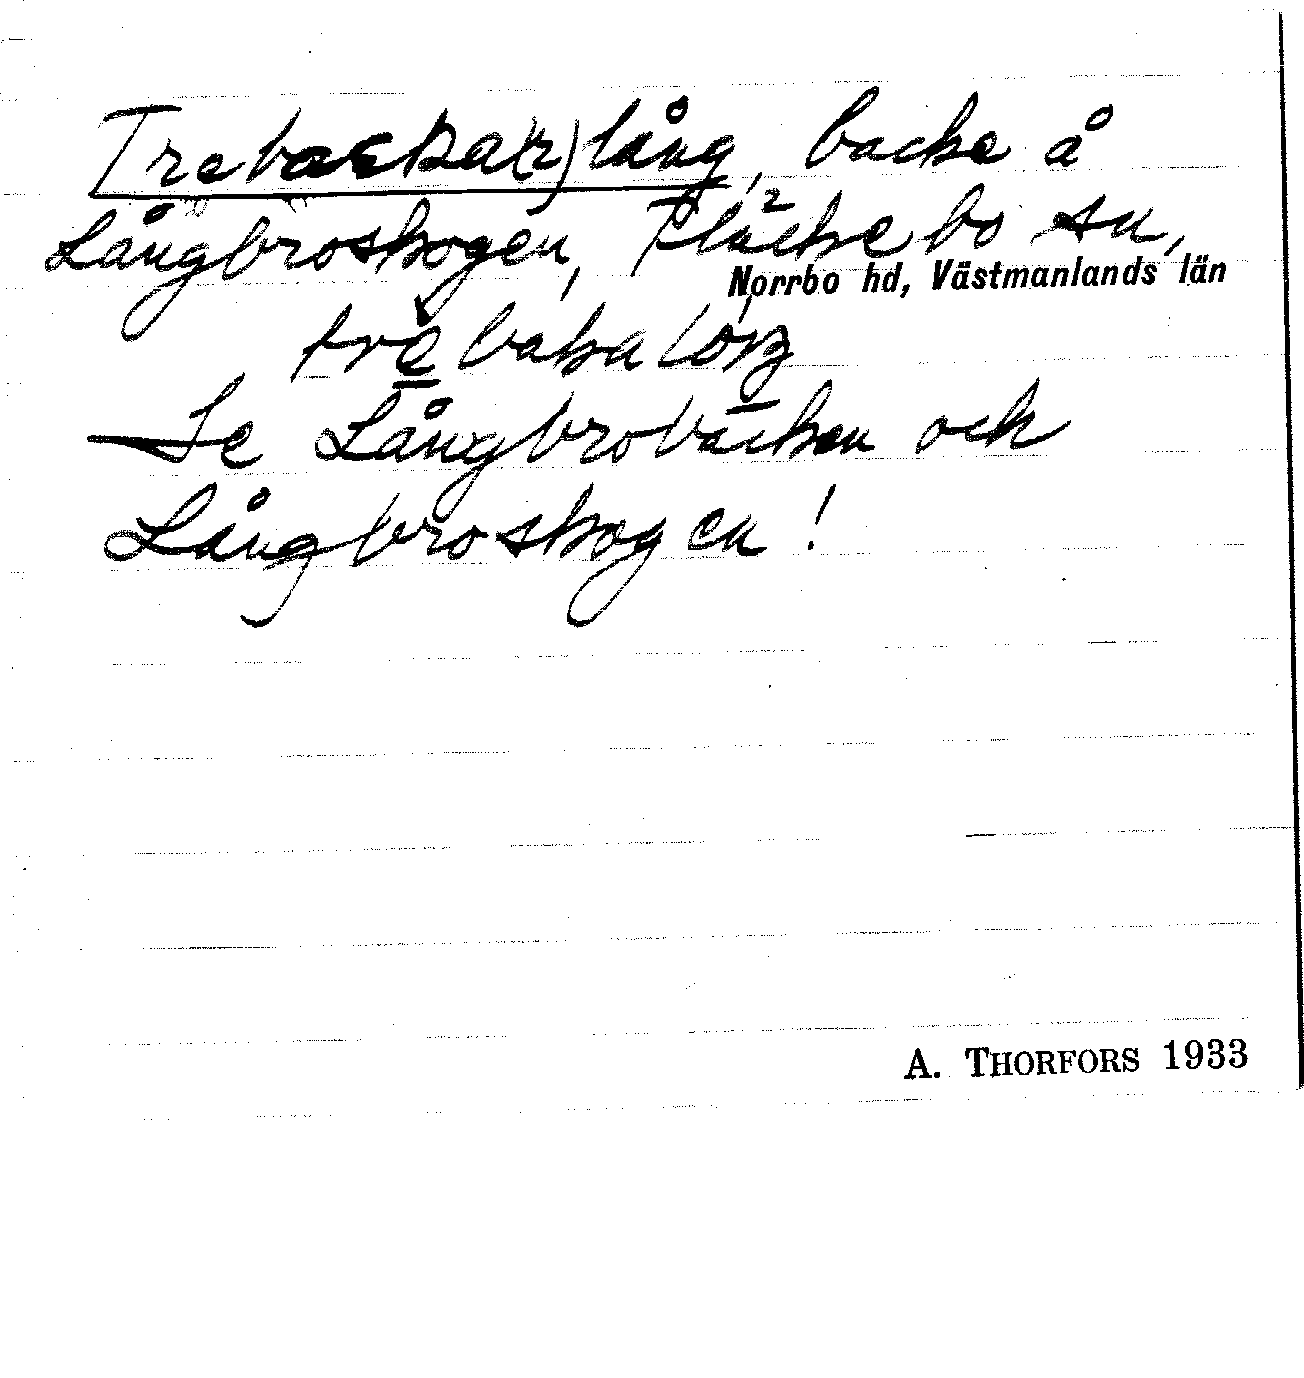 Trebackar(r)lång, backe å
Långbroskogen, Fläckebo sn,
Norrbo hd, Västmanlands län
Se Långbrobäcken och
Långbroskogen!
A. THORFORS 1933